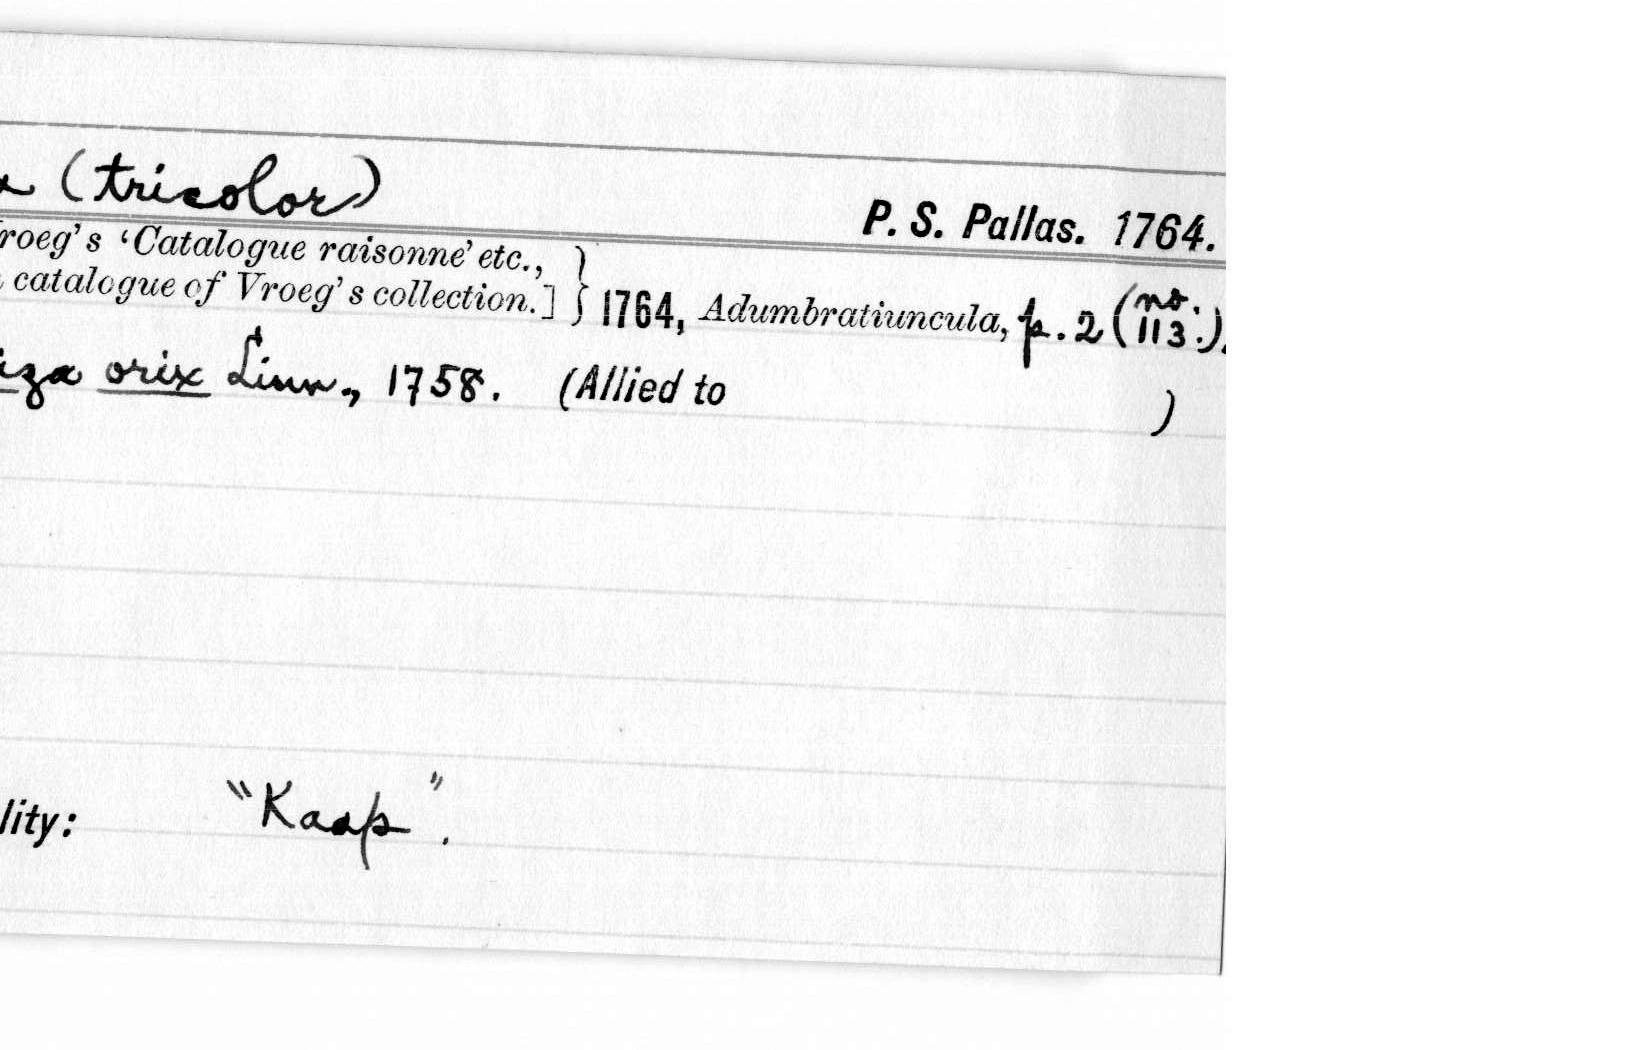 (tricolor)
P. S. Pallas. 1764.
roeg's 'Catalogue raisonne' etc.,
catalogue of Vroeg's collection.] } 1764, Adumbratiuncula, p. 2 (no. 113.),
iza orix Linn., 1758. (Allied to )
lity: "Kaap".